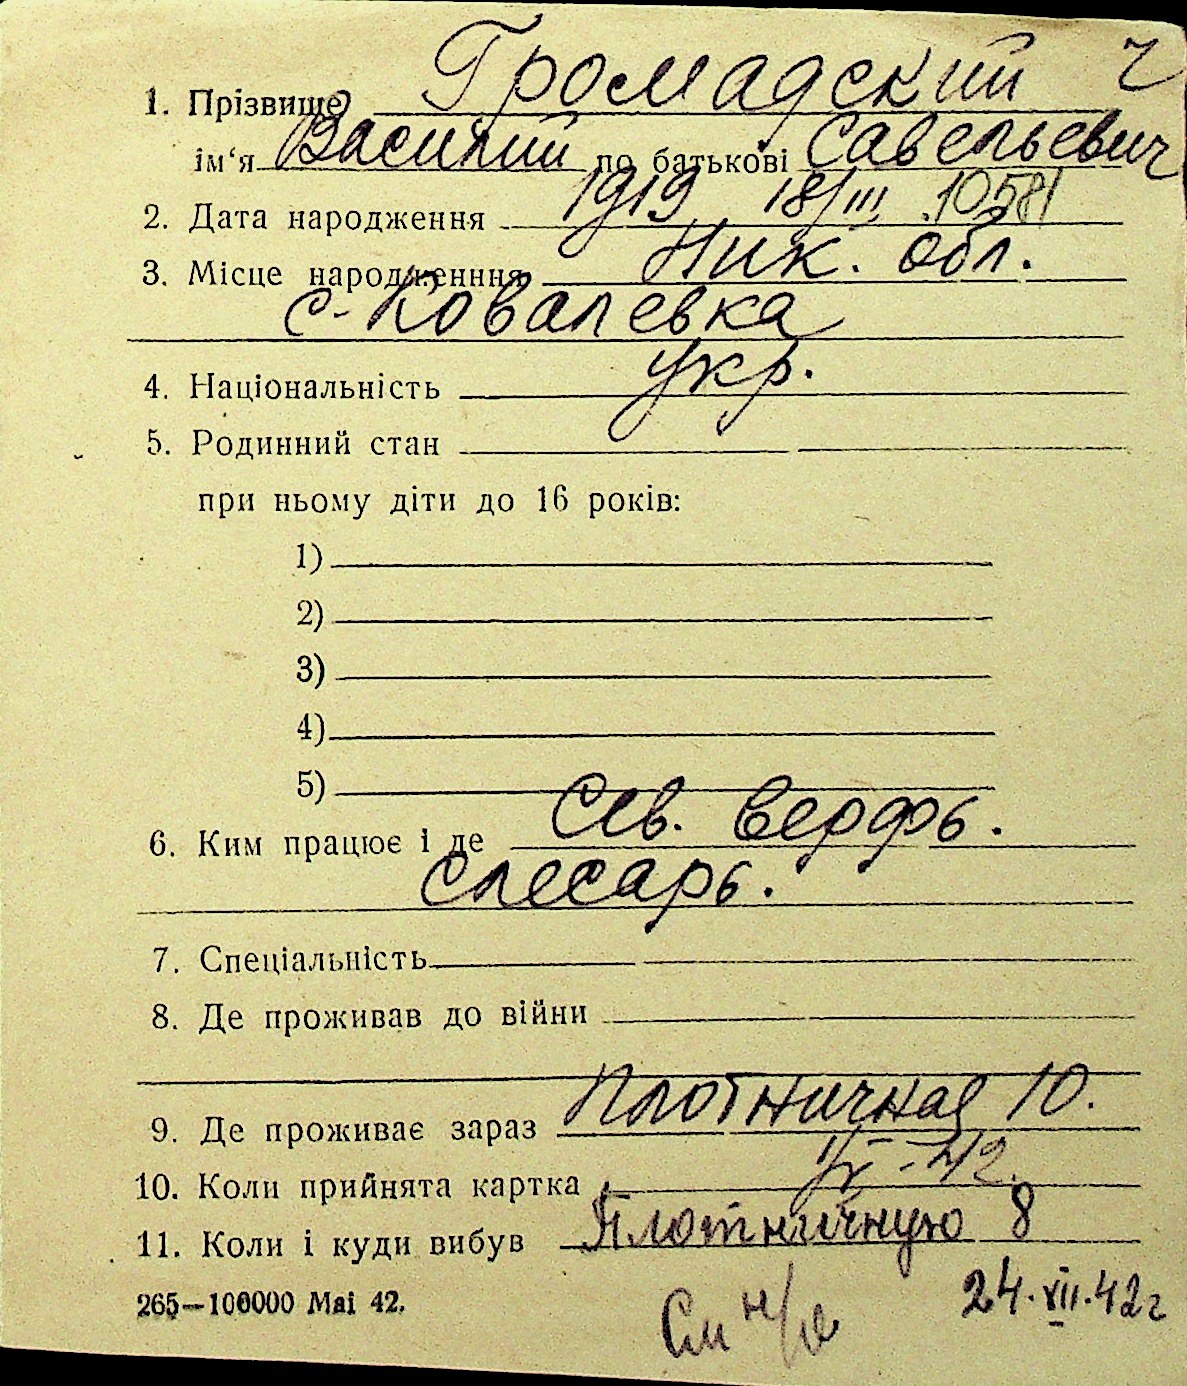 1. Прізвище Громадский Ч
ім‘я Василий по батькові Савельевич
2. Дата народження 1919 18/III 10581
3. Місце народженння Ник. обл.
с. Ковалевка
4. Національність укр.
5. Родинний стан
при ньому діти до 16 років:
1)
2)
3)
4)
5)
6. Ким працює і де Сев. верфь.
слесарь.
7. Спеціальність
8. Де проживав до війни
9. Де проживає зараз Плотничная 10.
10. Коли прийнята картка 42
11. Коли і куди вибув Плотничную 8
265—100000 Mai 42.
24.VII.42г
См н/о